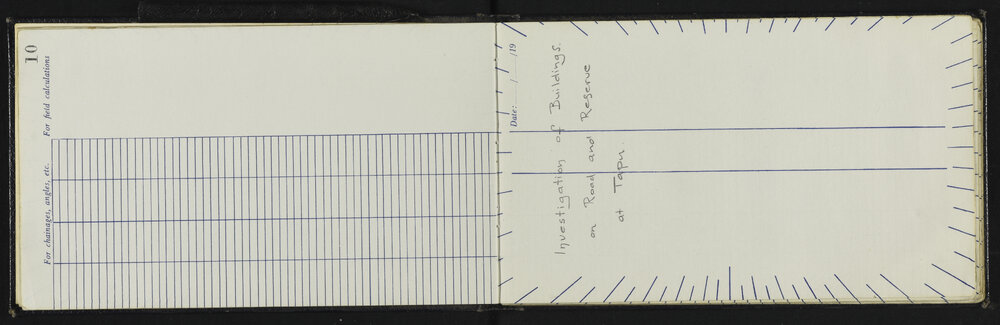 10
For field calculations
For chainages, angles, etc.
Date: / /19
Investigation of Buildings.
on Road and Reserve
at Tapu.